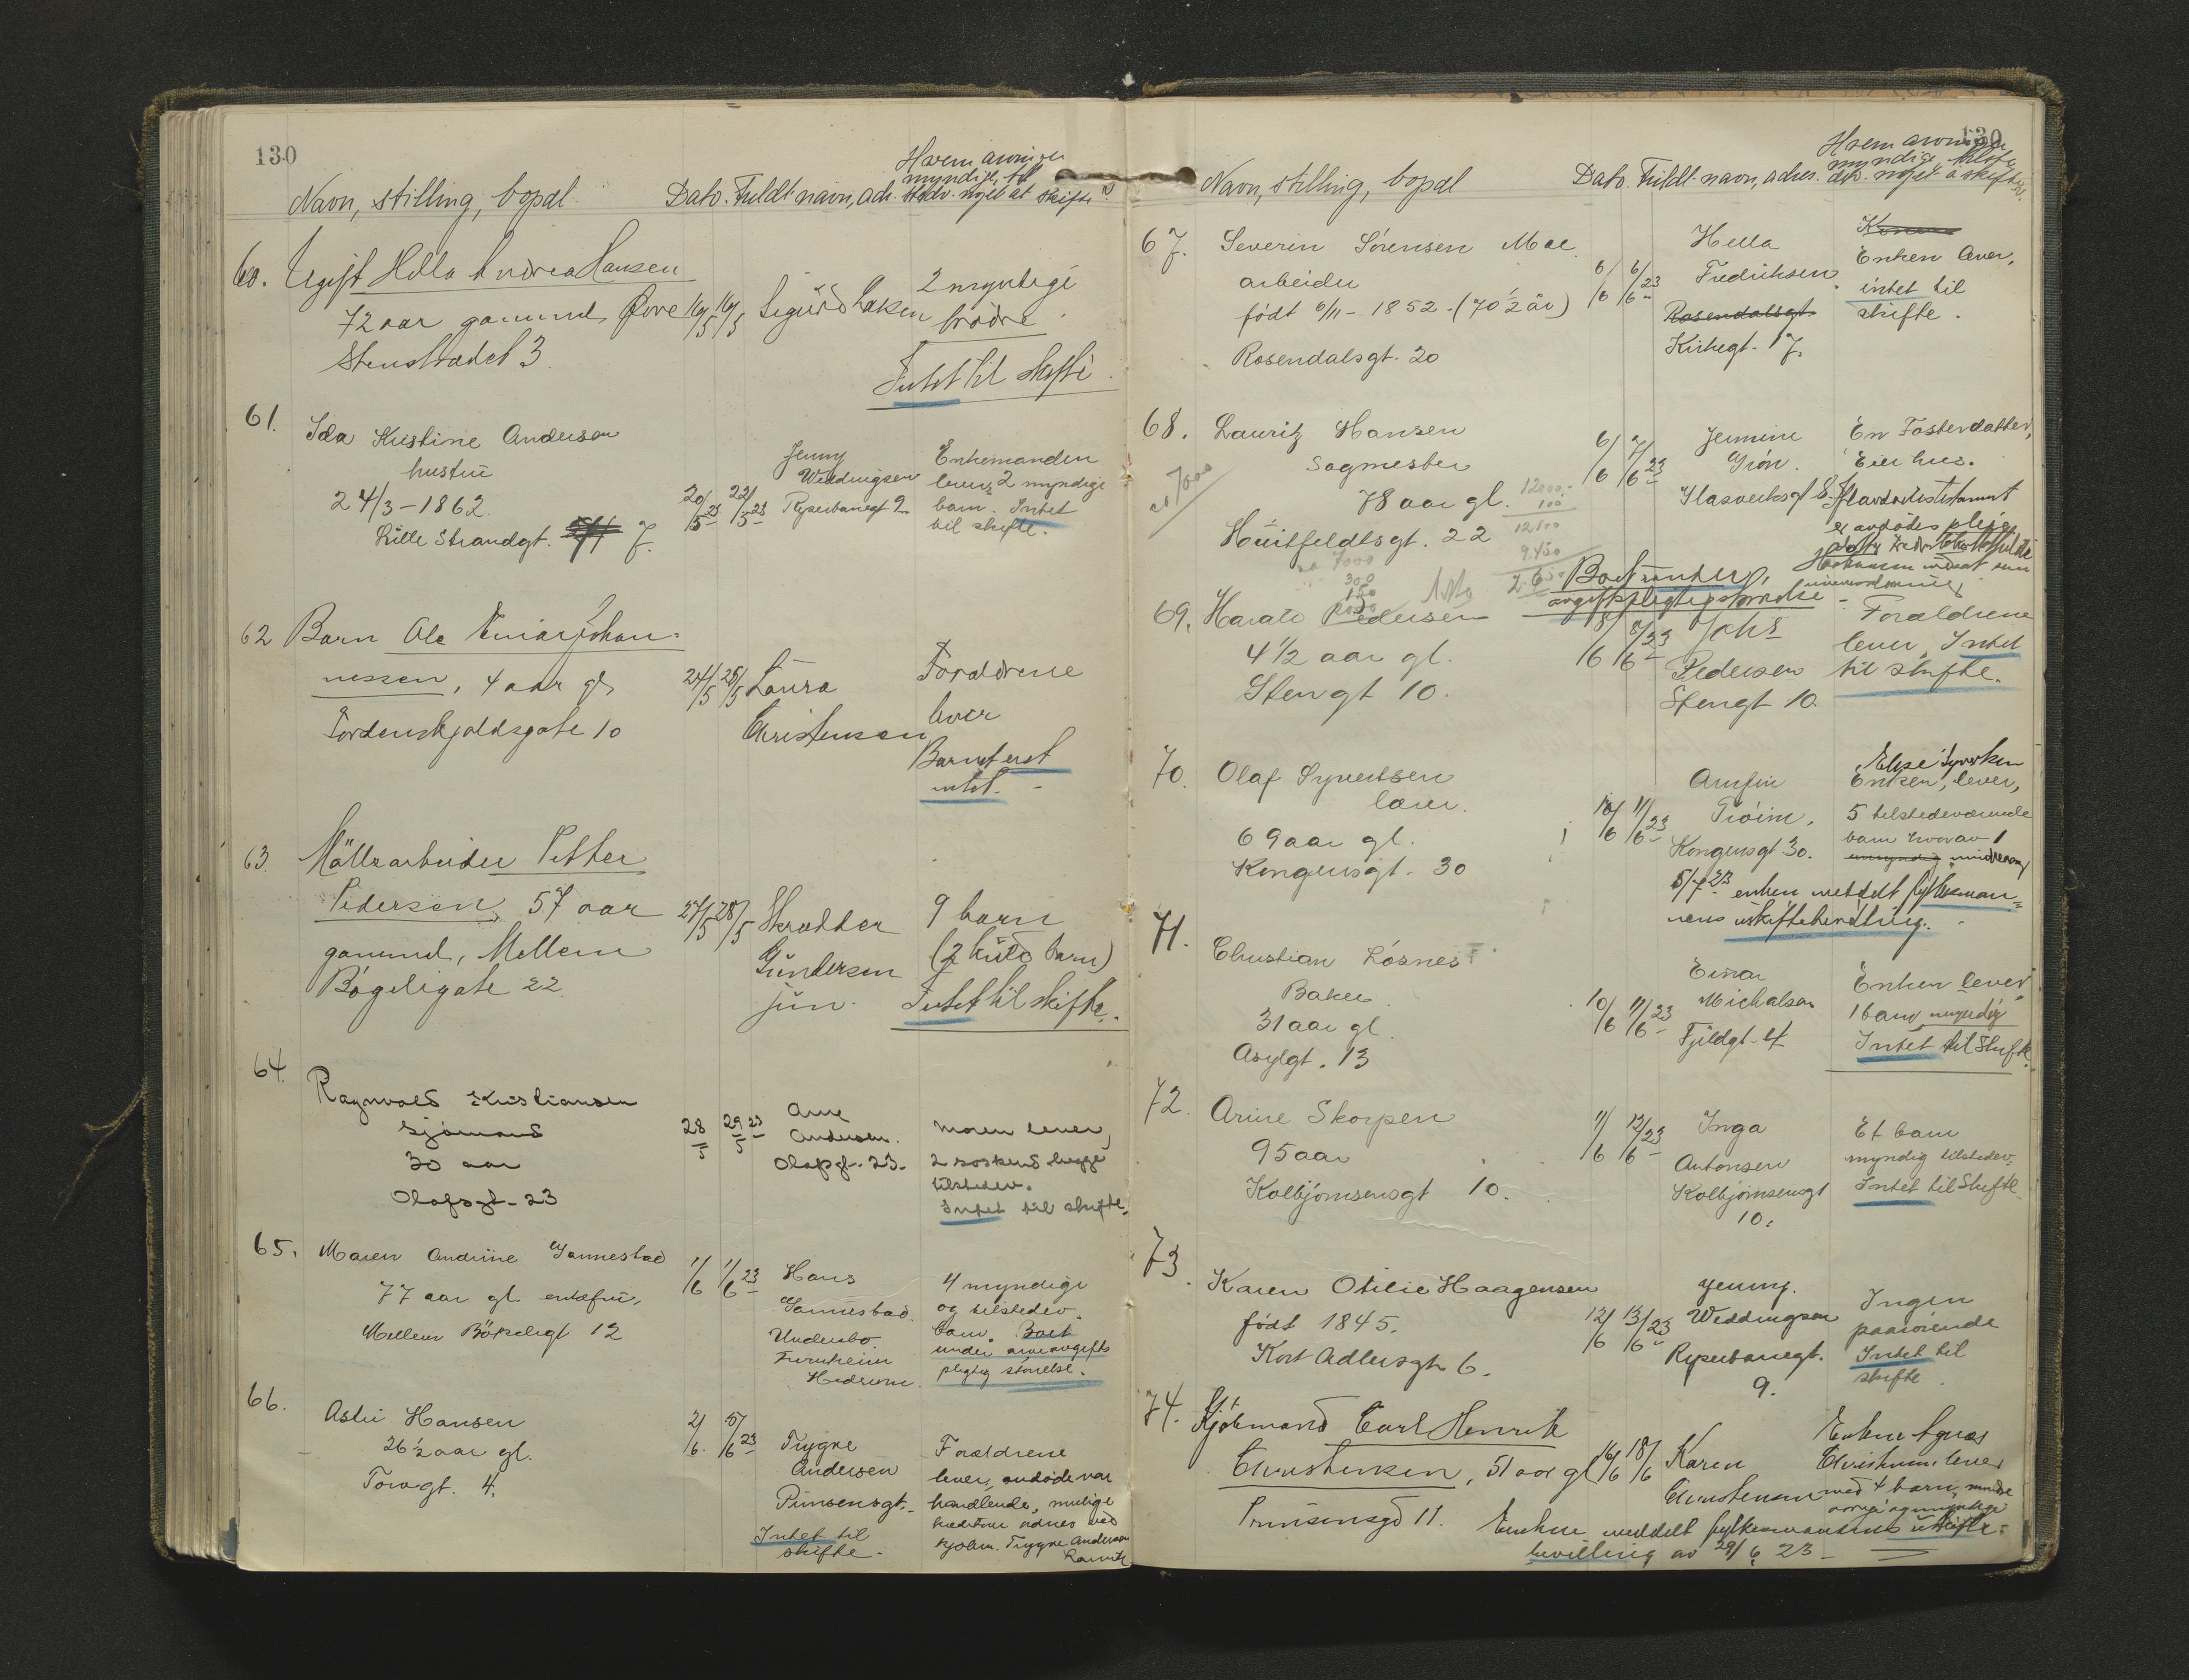 130
Navn, stilling, bopæl
Dato. Fuldt navn, adr.
Hvem arvinger
myndige, til
stedv. noget at skifte?
60. Ugift Hella Andrea Hansen
72 aar gammel, Øvre
Stenstrædet 3.
19/5 19/5
Sigurd
2 myndige
brødre.
Intet til skifte.
61.
Ida Kristine Andersen
hustru
24/3-1862.
Lille Strandgt. 7.
20/5 23 22/5 23
Jenny
Weddingsen
Ryseibanegt 9
Enkemanden
lever, 2 myndige
barn. Intet
til skifte.
62 Barn Ole Einar Johan-
nessen, 4 aar gl,
Tordenskjoldsgate 10
24/5 25/5
Laura
Christensen
Forældrene
lever
Barnet eret
intet. -
63.
Møllearbeider Petter
Pedersen, 57 aar
gammel, Mellem
Bøgeligate 22.
27/5 28/5
Skrædder
Gundersen
jun.
9 barn
(2 kuld barn)
Intet til skifte.
64.
Ragnvald Kristiansen
Sjømand
30 aar
Olafsgt-23
28/5 29/5 23
Arne
Andersen.
Olafsgt.-23-
Moren lever,
2 søskend begge
tilstedev.
Intet til skifte.
65. Maren Andrine Gannestad
77 aar gl. enkefru,
Mellem Bökeligt 12
1/6 1/6 23
Hans
Gannestad.
Underbo
Furuheim
Hedrum.
4 myndige
og tilstedev.
barn. Boet
under arveavgifts
pligtig størrelse.
66.
Astri Hansen
26 1/2 aar gl.
Torvgt. 4.
2/6. 5/6 23
Trygve
Andersen
Prinsensgt.
Intet til
skifte.
Forældrene
lever, avdøde var
handlende, mulige
kreditorer ordnes ved
kjøbm. Trygve Andersen
Larvik
130
Navn, stilling, bopæl
Dato. Fuldt navn, adres.
Hvem arvinger
myndige, tilste
dev. noget å skifte
67. Severin Sørensen Moe.
arbeider
født 6/11-1852. (70 1/2 år)
Rosendalsgt. 20
6/6 6/6 23
Hella
Fredriksen.
Rosendalsgt.
Kirkegt. 7.
Enken lever,
intet til
skifte.
68. Lauritz Hansen
Sagmester
78 aar gl.
Huitfeldtsgt. 22
7000
12000.-
100
12100
9450
2650
7000
300
150
6/6 7/6 23
Jennine
Grøn.
Glasverksgt 8.
En Fosterdatter,
Eier hus.
Boet under
avgiftspligtig størrelse
69. Harald Pedersen
4 1/2 aar gl.
Stengt 10.
8/6 8/6 23
Johs
Pedersen
Stengt 10.
Forældrene
lever, Intet
til skifte.
70. Olaf Syvertsen
lærer.
69 aar gl.
Kongensgt. 30
10/6 11/6 23
Arnfin
Trøim.
Kongensgt 30.
Elise Syvertsen
Enken, lever,
5 tilstedeværende
barn hvorav 1
umyndig mindreaarig
5/7 23 enken meddelt fylkesman-
nens uskiftebevilling.
71.
Christian Løsnes
Baker.
31 aar gl.
Asylgt. 13
10/6 11/6 23
Einar
Michalsen
Fjeldgt-4
Enken lever
1 barn, umyndig
Intet til Skifte.
72. Arine Skorpen
95 aar
Kolbjørnsensgt 10.
11/6 12/6 23
Inga
Antonsen
Kolbjørnsensgt
10.
Et barn
myndig tilstedev.
Intet til Skifte.
73.
Karen Otilie Haagensen
født 1845.
Kort Adlersgt. 6.
12/6 13/6 23
Jenny.
Weddingsen
Ryseibanegt.
9.
Ingen
paarørende
Intet til
skifte.
74. Kjøbmand Carl Henrik
Christensen, 51 aar gl
Prinsensgd 11.
16/6 18/6
Karen
Christensen
Enken Agnes
Christensen lever
med 4 barn,
Enken meddelt fylkesmandens uskifte-
bevilling av 29/6 23-